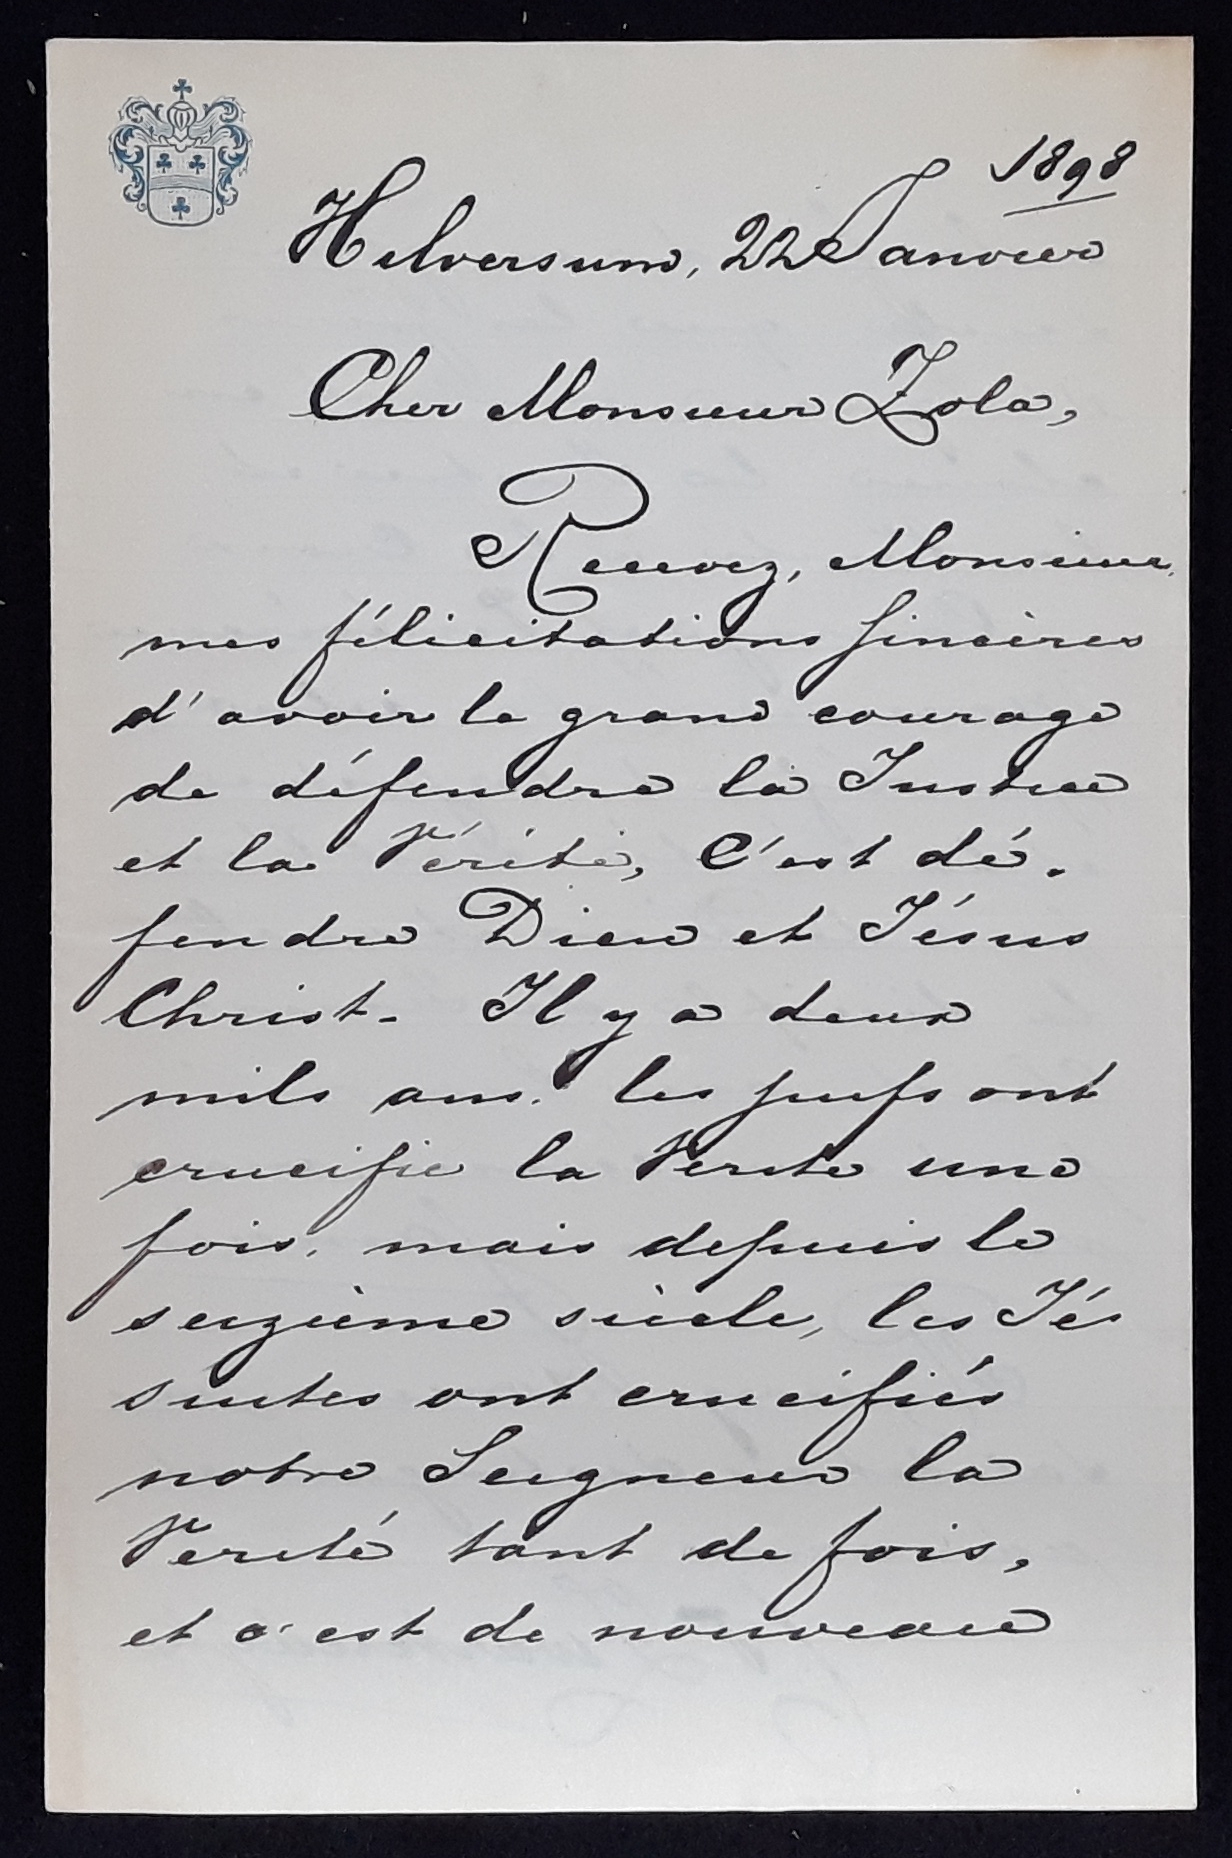 1898
Hilversum, 22 Janvier
Cher Monsieur Zola,
Recevez, Monsieur,
mes félicitations sincères
d'avoir le grand courage
de défendre la Justice
et la Vérité, C'est dé-
fendre Dieu et Jésus
Christ. Il y a deux
mils ans. les juifs ont
crucifié la Verité une
fois, mais depuis le
seizième siècle, les Jé
suites ont crucifiés
notre Seigneur la
Verité tant de fois,
et c'est de nouveau